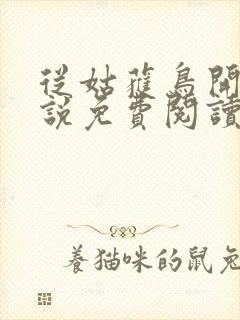 從姑蘿鳥開
說免費閱讀
養貓咪的鼠兔